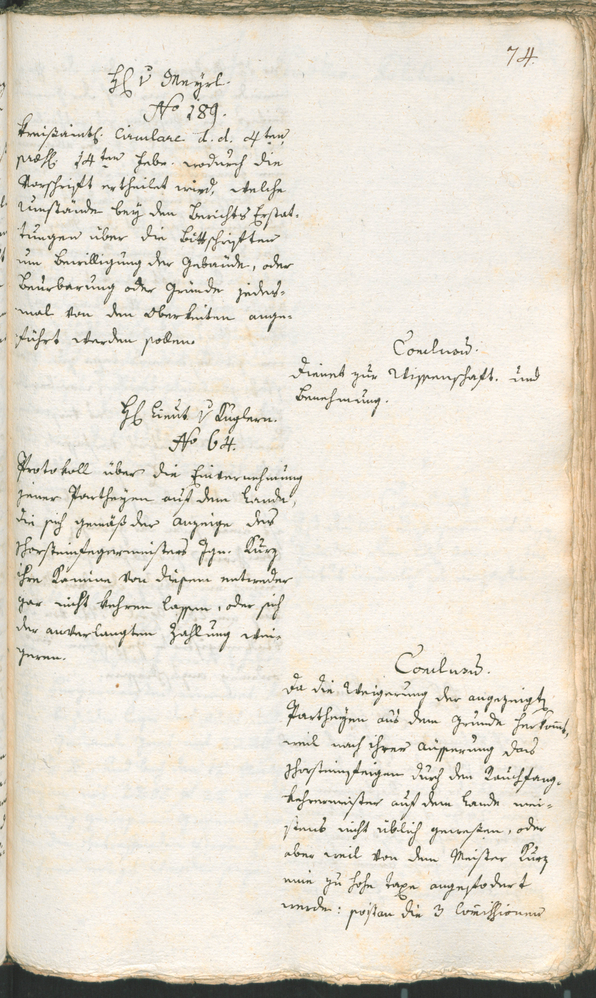 74.
H v Mayrl.
No 189.
Kreisämtl. Circulare d. d. 4ten
14ten Febr. wodurch die
Vorschrift ertheilet wird, welche
Umstände bey den Berichts Erstat-
tungen über die Bittschriften
um Bewilligung der Gebäude, oder
Beurbarung oder Gründe jedes-
mal von den Obrigkeiten ange-
führt werden sollen.
Conclusum.
dienet zur Wissenschaft. und
Benehmung.
H Lieut v Kuglern.
No 64.
Protokoll über die Einvernehmung
jener Partheyen auf dem Lande,
die sich gemäß der Anzeige des
Schorsteinfegermeisters Ign. Kurz
ihre Kamine von diesem entweder
gar nicht kehren lassen, oder sich
der anverlangten Zahlung wei-
geren.
Conclusum.
Da die Weigerung der angezeigten
Partheyen aus dem Grunde herkomt,
weil nach ihrer Äusserung das
Schorsteinsteigen durch den Rauchfang-
kehrermeister auf dem Lande mei-
stens nicht üblich gewesen, oder
aber weil von dem Meister Kurz
eine zu hohe Taxe angefodert
werde: so die 3 Comissionen